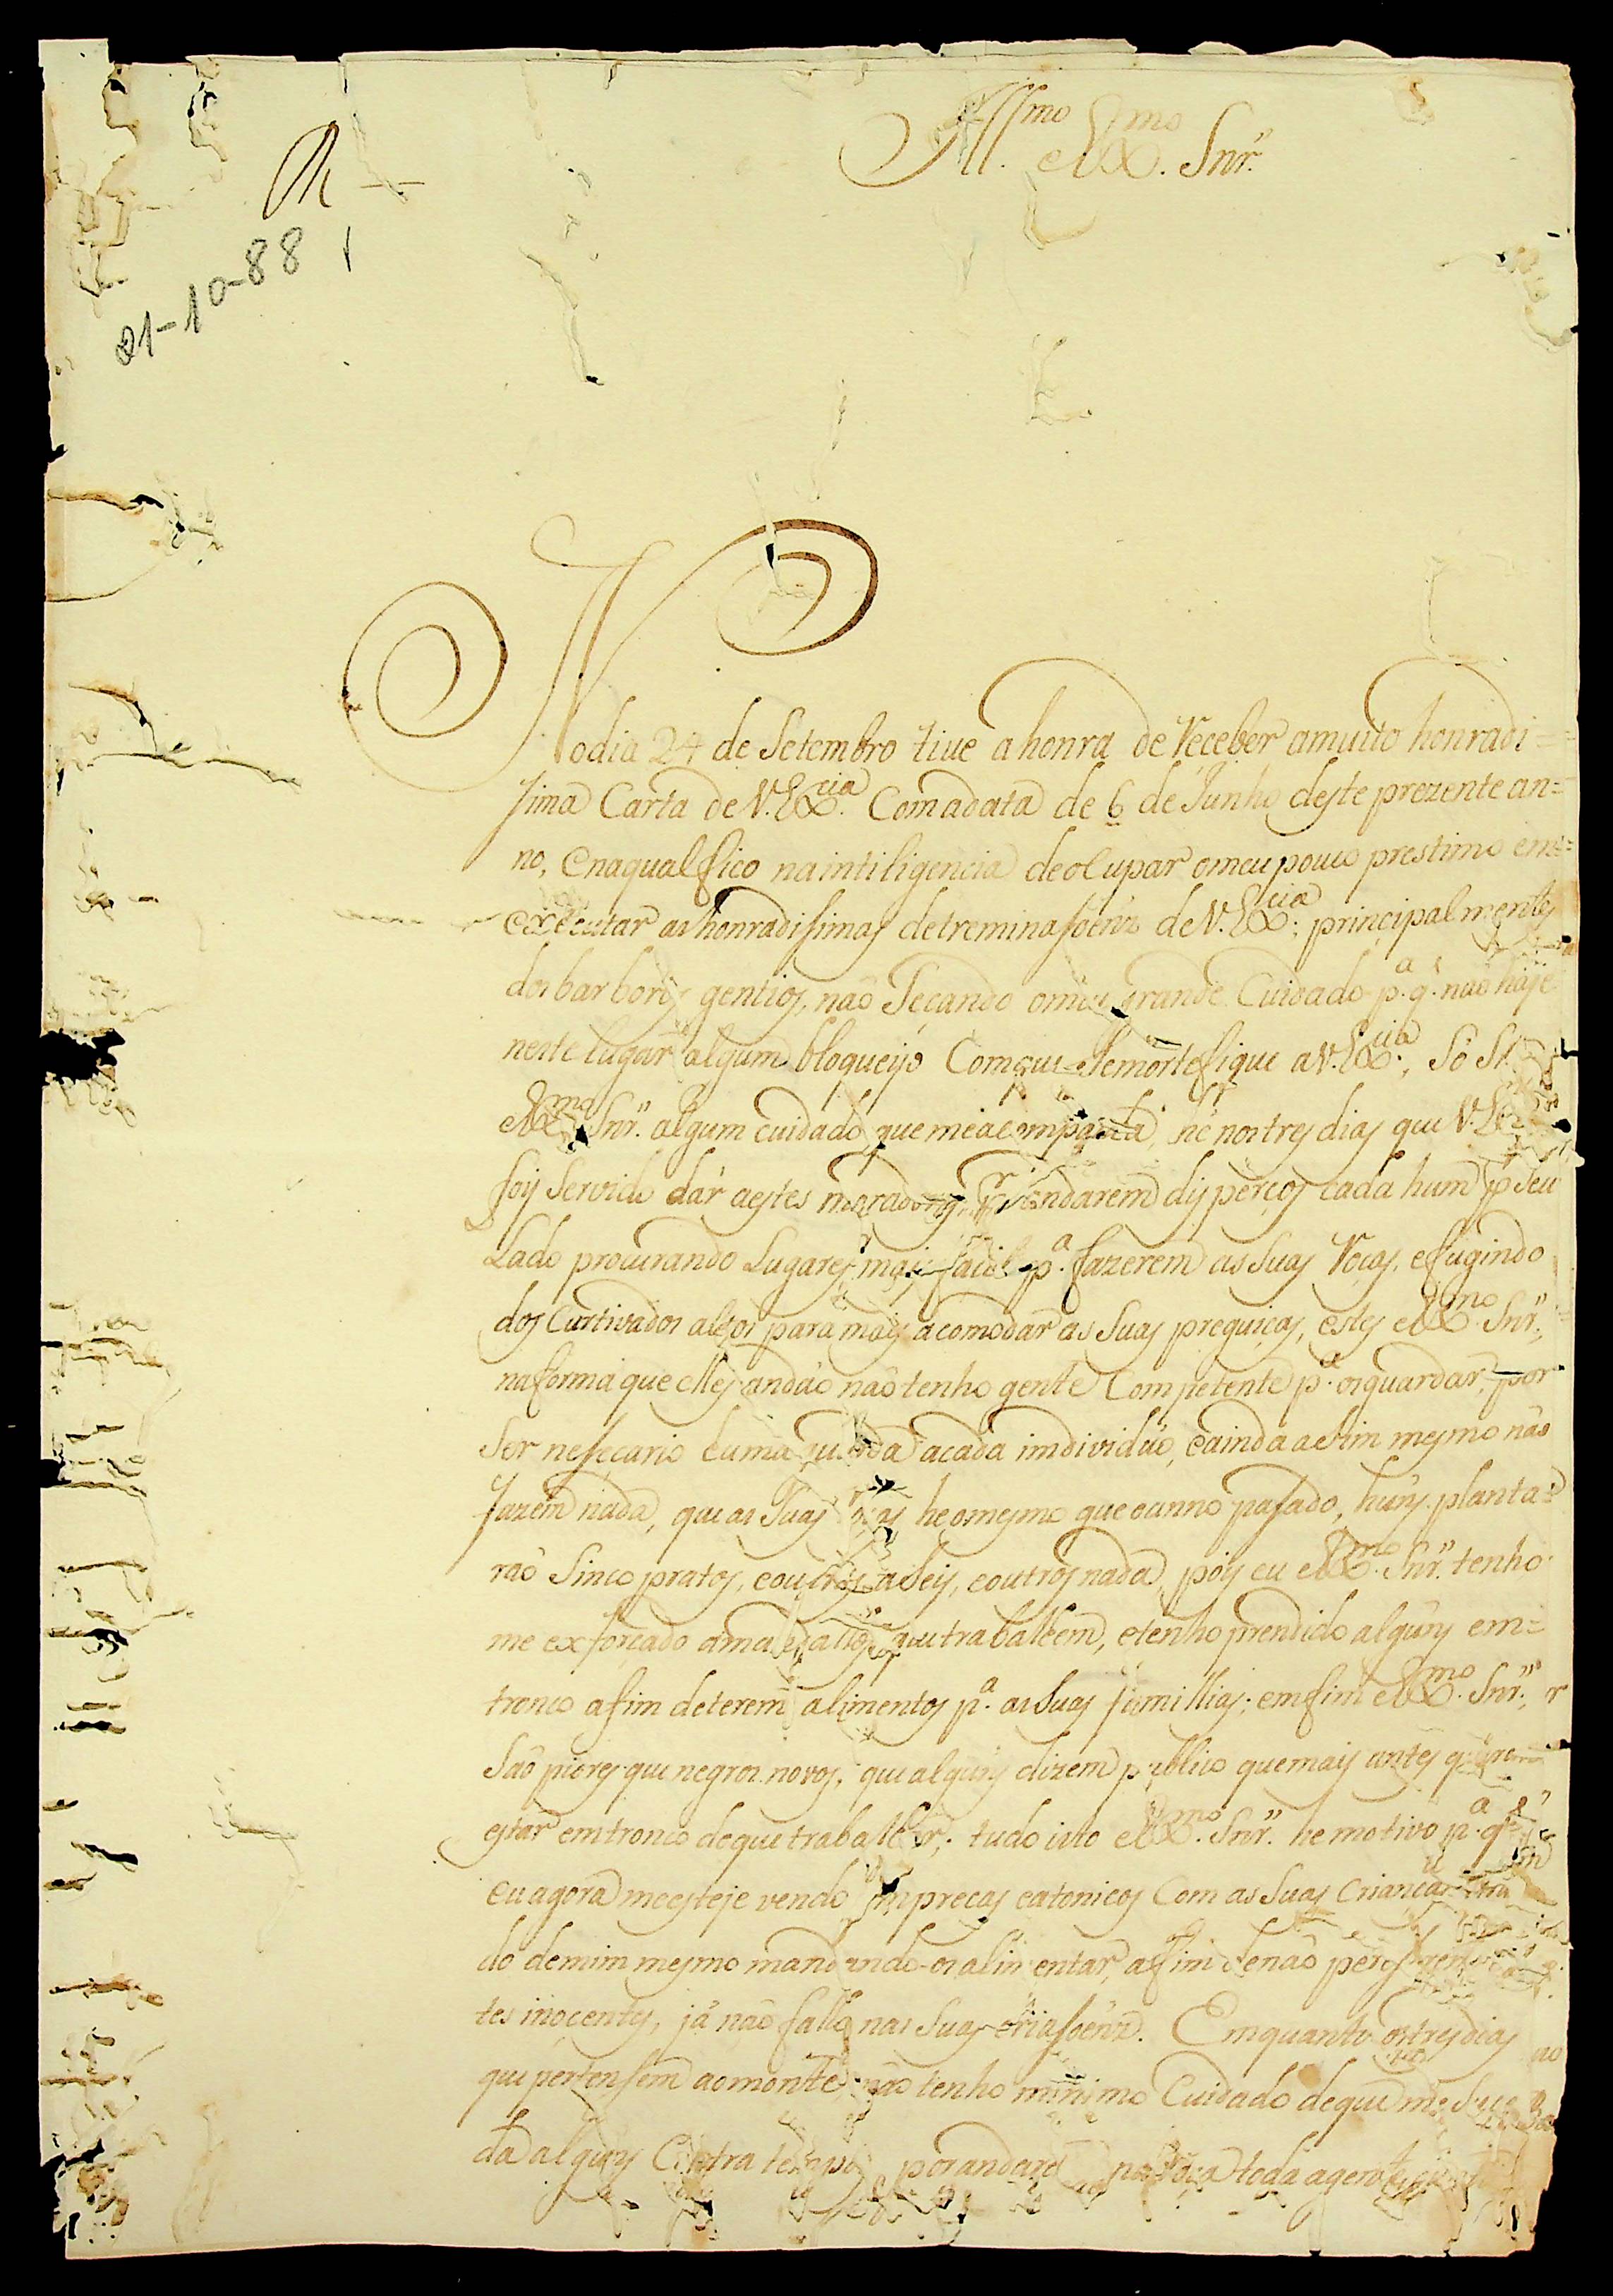 Ill.mo Ex.mo Snr.
R
21-10-88
No dia 24 de Setembro tive a honra de Receber a muito honradi=
sima Carta de V. Ex.cia Com a data de 6 de Junho deste prezente an=
no, e na qual fico na intiligencia de ocupar o meu pouco prestimo em
executar as honradisimas detreminasoens de V. Ex.cia; principalmente
dos barboros gentios, não seçando o mior grande Cuidado p.a q. não haje
neste lugar algum bloqueijo Com que se mortefique a V. Ex.cia, Só
Ex.mo Snr. algum cuidado que me acompanha, he nos tres dias que V. Ex
foy Servido dár a estes moradores, andarem disperços cada hum p Seu
Lado procurando Lugares mais p.a fazerem as Suas Roças, e fugindo
dos Curtivados para mais acomodar as Suas preguiças, estes Ex.mo Snr.,
na forma que elles andão não tenho gente Competente p.a os guardar, por
Ser neseçario huma guarda a cada individuo, e ainda asim mesmo não
fazem nada, que as Suas roças he o mesmo que o anno pasado, huns planta=
rão Sinco pratos, e outros a Seis, e outros nada, pois eu Ex.mo Snr. tenho
me exforçado a mandallos que trabalhem, e tenho prendido alguns em=
tronco a fim de terem alimentos p.a as Suas familhias; em fim Ex.mo Snr.,
São piores que negros novos, que alguns dizem publico que mais antes querem
estar em tronco de que trabalhar; tudo isto Ex.mo Snr. he motivo p.a q
eu agora me esteje vendo em precas e atonicos Com as Suas Crianças
do de mim mesmo mandando-os alimentar, a fim de não
tes inocentes, já não fallo nas Suas criasoens. Emquanto os tres dias
que pertensem ao monte, não tenho minimo Cuidado de que me Suce
da alguns Contra tempos por andarem na roça toda a gente